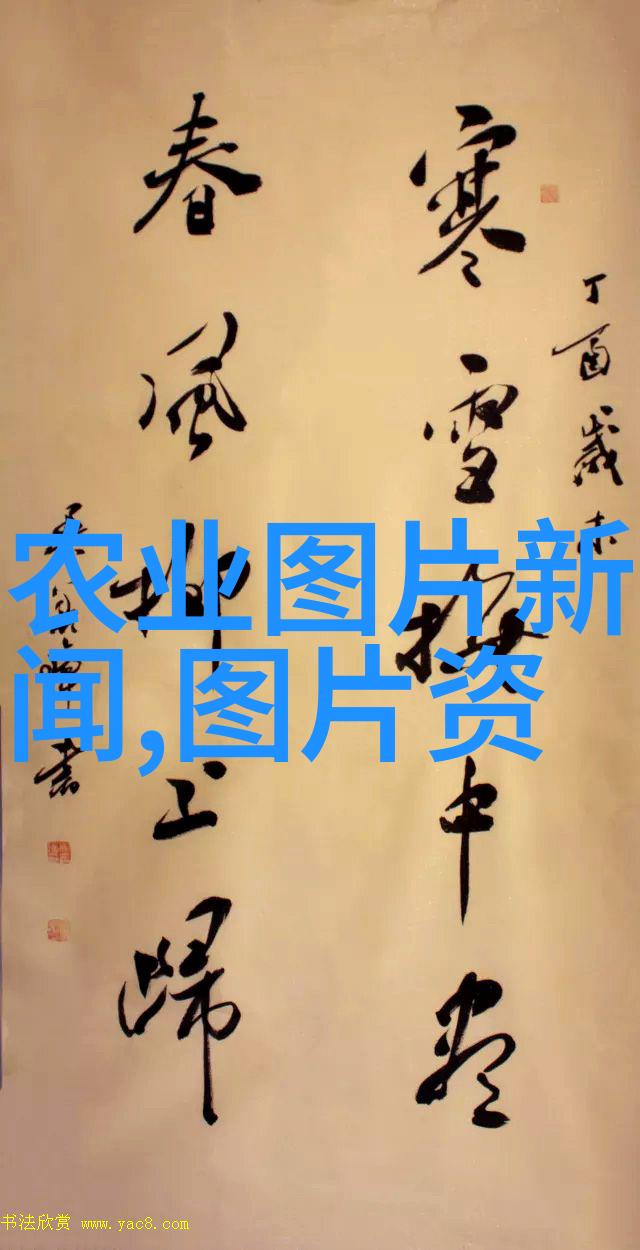 丁酉岁末
寒雪梅中尽
春风柳上归
书
农业图片新
闻,图片资
书法欣赏 www.yac8.com